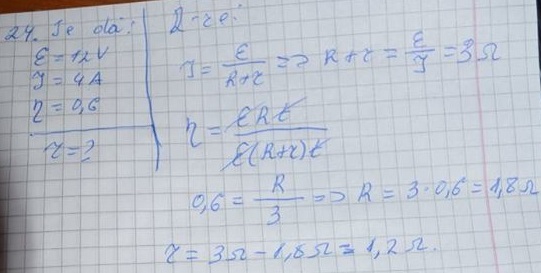 24. Se dă:
ε = 12V
I = 4A
η = 0,6
r = ?
R-re:
I = ε/(R+r) => R+r = ε/I = 3Ω
η = εRt/(ε(R+r)t)
0,6 = R/3 => R = 3·0,6 = 1,8Ω
r = 3Ω - 1,8Ω = 1,2Ω.